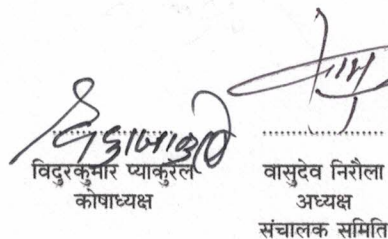 विदुरकुमार प्याकुरेल
कोषाध्यक्ष
वासुदेव निरौला
अध्यक्ष
संचालक समिति